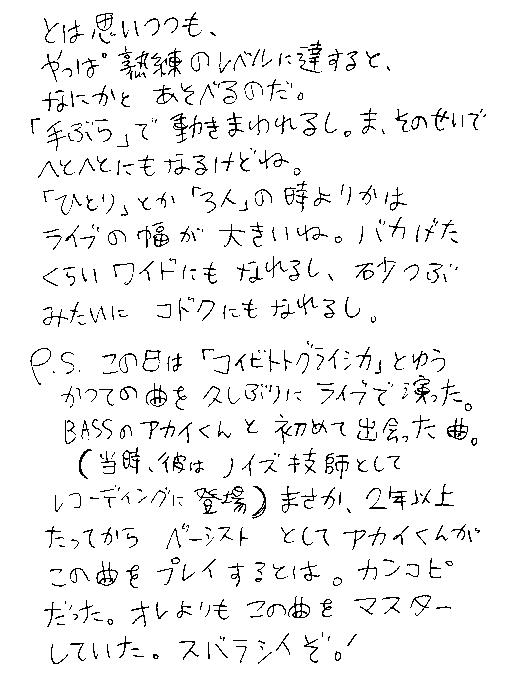 とは思いつつも、
やっぱ熟練のレベルに達すると、
なにかと あそべるのだ。
「手ぶら」で 動きまわれるし。ま、そのせいで
へとへとにもなるけどね。
「ひとり」とか「3人」の時よりかは
ライブの幅が 大きいね。バカげた
くらい ワイドにも なれるし、砂つぶ
みたいに コドクにも なれるし。
P.S. この日は「コイビトトグライシカ」とゆう
かつての曲を 久しぶりに ライブで 演った。
BASSのアカイくんと 初めて 出会った曲。
(当時、彼は ノイズ技師として
レコーディングに 登場) まさか、2年以上
たってから ベーシスト として アカイくんが
この曲を プレイするとは。カンコピ
だった。オレよりも この曲を マスター
していた。スバラシイぞ。!